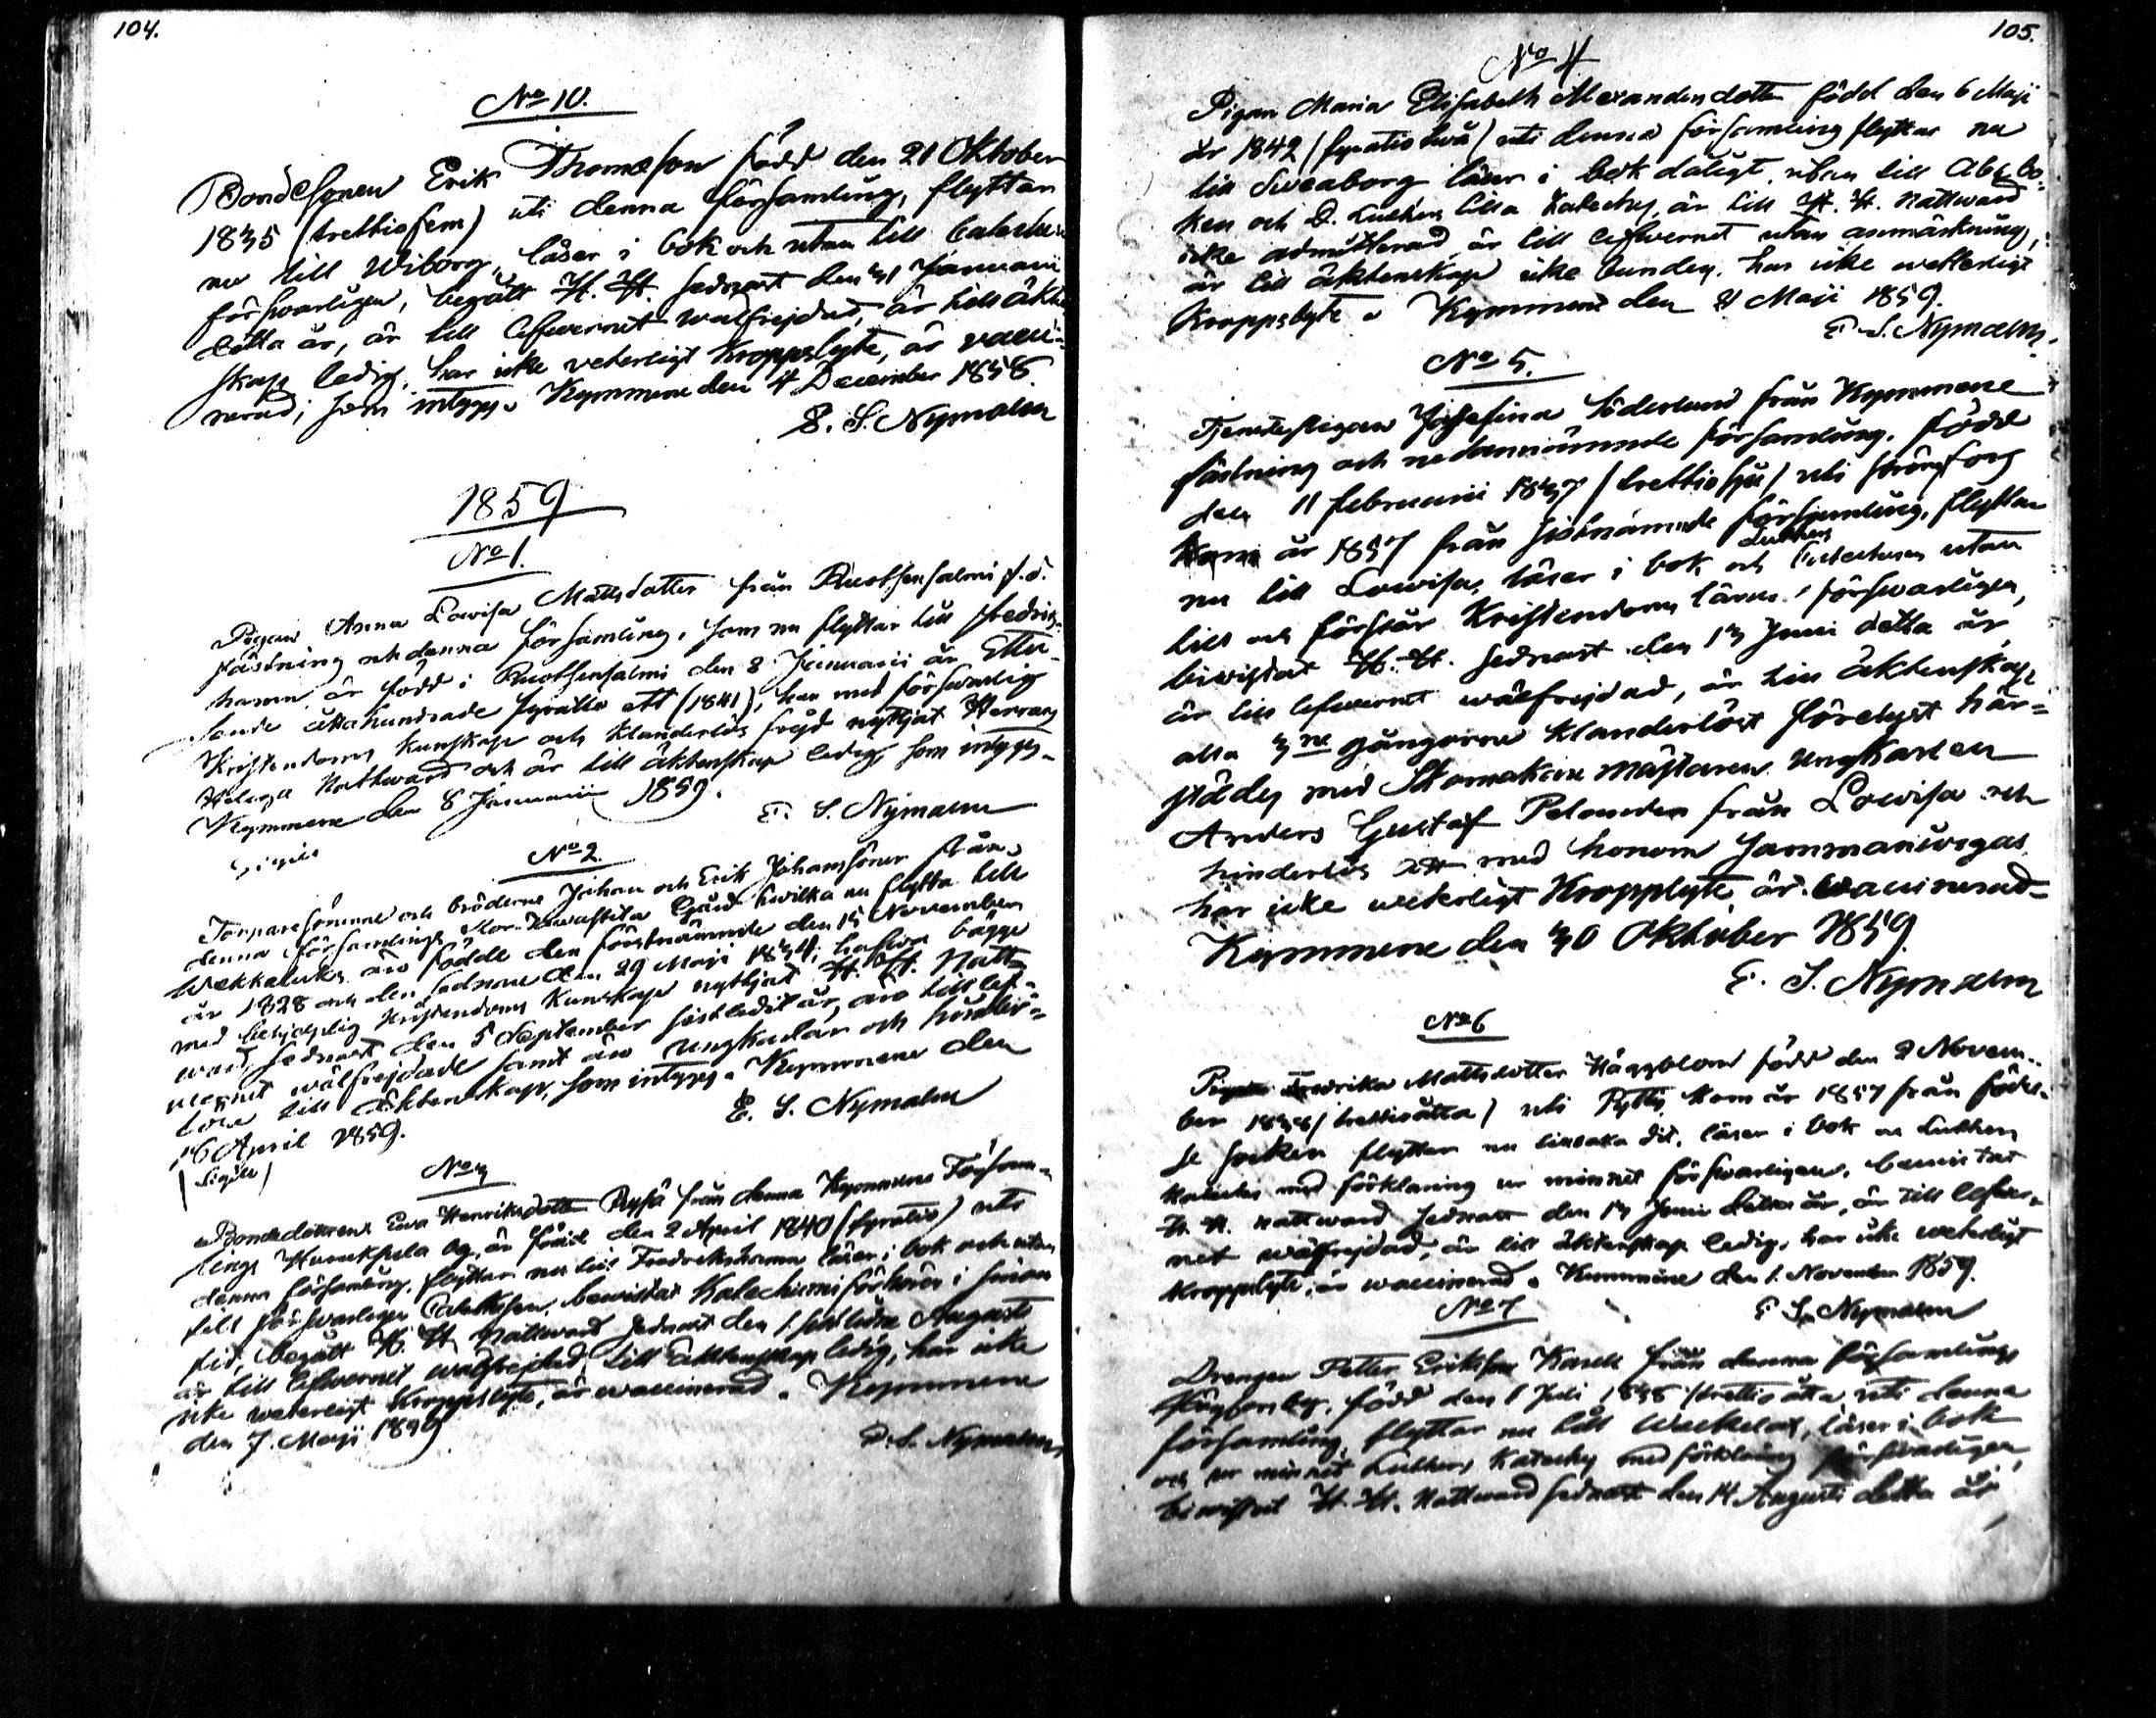 104.
No 10.
Bondesonen Erik Thomasson född den 21 Oktober
1835 (trettiofem) uti denna församling, flyttar
nu till Wiborg, läser i bok och utan till Cateches
försvarligen, begått H. H. sednast den 31 Januarii
detta år, är till lefvernet wälfrejdad, är till äkten
skap ledig, har icke veterligt Kroppslyte, är vacci-
nerad; som intygas Kymmene den 4 December 1858.
E. S. Nymalm
1859
No 1.
Pigan Anna Lowisa Mattsdotter från Ruotsensalmi f.d.
fästning och denna församling, som nu flyttar till Fredriks-
hamn är född i Ruotsensalmi den 8 Januarii år Ettu-
sende åttahundrade fyratio ett (1841), har med försvarlig
Kristendoms kunskap och klanderlös frejd nyttjat Herrans
Heliga Nattward och är till äktenskap ledig, som intygas
Kymmene den 8 Januarii 1859.
E. S. Nymalm
Sigill
No 2.
Torparesönerne och bröderne Johan och Erik Johanssöner från
denna församlings Stor gård hwilka nu flytta till
Wekkelaks äro födde den förstnämnde den 15 November
år 1828 och den sednare den 29 Maji 1834; hafwa bägge
med behjelplig Kristendoms Kunskap nyttjat H. H. Natt-
ward sednast den 5 September sistledit år, äro till lef-
wernet wälfrejdade samt äro ungkarlar och hinder-
löse till äktenskap, som intygas Kymmene den
16 April 1859.
E. S. Nymalm
(Sigill)
No 3
Bondedottren Ewa Henriksdotter från denna Kymmene Försam-
lings by, är född den 2 April 1840 (fyratio) uti
denna församling, flyttar nu till Fredrikshamn läser i bok och utan
till försvarligen bewistat Katechismiförhören i sinom
tid, begått H. H. Nattward sednast den 1 sistlidne Augusti
är till lefwernet wälfrejdad, till äktenskap ledig, har icke
icke weterligt Kroppslyte, är waccinerad. Kymmene
den 7. Maji 1859
E. S. Nymalm
105.
No 4
Pigan Maria Elisabeth Alexandersdotter född den 6 Maji
år 1842 (fyratiotwå) uti denna församling flyttar nu
till Sveaborg läser i bok dåligt, utan till Abc bo-
ken och D. Luthers lilla Kateches, är till H. H. Nattward
icke admitterad, är till lefwernet utan anmärkning,
är till äktenskap icke bunden, har icke wetterligt
Kroppslyte. Kymmene den 21 Maji 1859.
E. S. Nymalm.
No 5.
Tjenstepigan Josefina Söderlund från Kymmene
fästning och nedannämnde församling, född
den 11 februarii 1837 (trettiosju) uti Strömfors
Kom år 1857 från sistnämnde församling, flyttar
nu till Lowisa, läser i bok och Luthers Catechesen utan
till och förstår Kristendoms läran försvarligen,
bewistat H. H. sednast den 13 Juni detta år
är till lefwernet wälfrejdad, är till äktenskap
alla 3ne gångorne klanderlöst förelyst här-
städes med Skomakare mästaren Ungkarlen
Anders Gustaf Pelander från Lowisa och
hinderlös att med honom sammanwigas
har icke weterligt Kropplyte, är waccinerad
Kymmene den 30 Oktober 1859.
E. S. Nymalm
No 6
Pigan Fredrika Mattsdotter Häggblom född den 2 Novem-
ber 1838 (trettioåtta) uti Pyttis kom år 1857 från föd-
se socken flyttar nu tillbaka dit, läser i bok och Luthers
Kateches med förklaring ur minnet försvarligen, bewistat
H. H. nattward sednast den 13 Juni detta år, är till lefwer-
net wälfrejdad, är till äktenskap ledig, har icke weterligt
Kroppslyte, är waccinerad. Kymmene den 1. November 1859.
E. S. Nymalm
No 7
Drengen Petter Eriksson från denna församlings
by, född den 1 Juli 1838 (trettioåtta uti denna
församling, flyttar nu till Weckelax, läser i bok
och ur minnet Luthers Kateches med förklaring försvarligen,
bewistat H. H. Nattward sednast den 14 Augusti detta år